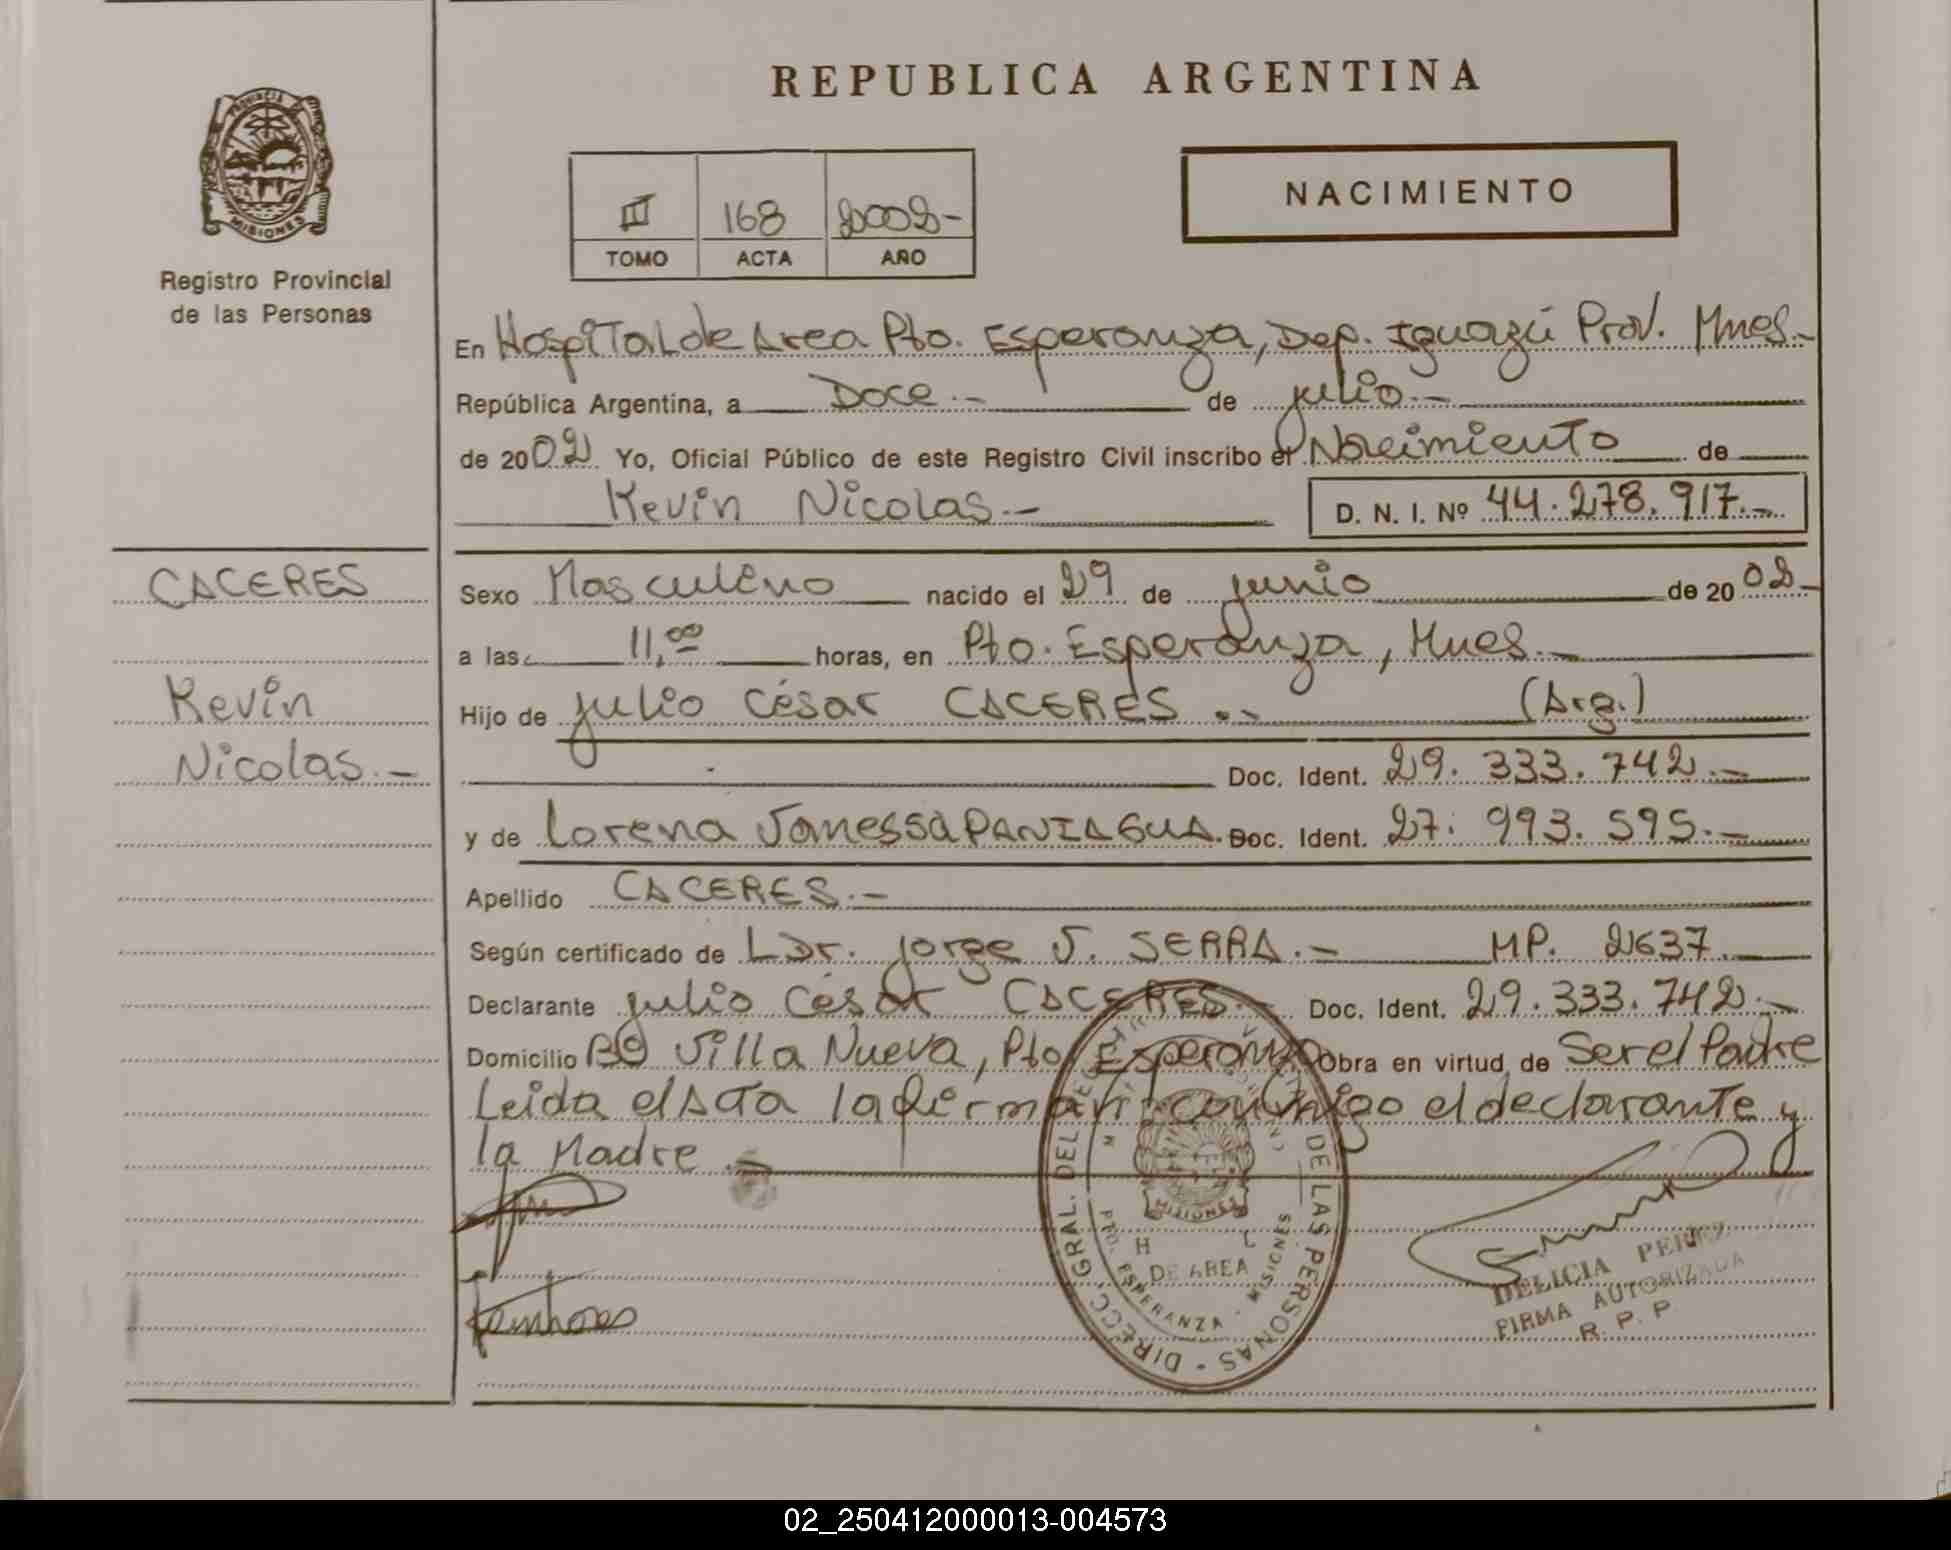 REPUBLICA ARGENTINA
PROVINCIA
MISIONES
Registro Provincial
de las Personas
III 168 2002-
TOMO ACTA AÑO
NACIMIENTO
En Hospital de Area Pto. Esperanza, Dep. Iguazú Prov. Mnes.-
República Argentina, a Doce.- de julio.-
de 2002 Yo, Oficial Público de este Registro Civil inscribo el Nacimiento de
Kevin Nicolas.- D. N. I. Nº 44.278.917.-
CACERES
Kevin
Nicolas.-
Sexo Masculino nacido el 29 de junio de 2002-
a las 11,00 horas, en Pto. Esperanza, Mnes.-
Hijo de julio César CACERES.- (Arg.)
Doc. Ident. 29.333.742.-
y de Lorena Vanessa PANIAGUA. Doc. Ident. 27.993.595.-
Apellido CACERES.-
Según certificado de Dr. jorge V. SERRA.- MP. 2637.
Declarante julio César CACERES.- Doc. Ident. 29.333.742.-
Domicilio Bº Villa Nueva, Pto. Esperanza Obra en virtud de Ser el Padre
Leida el Acta la firman conmigo el declarante y
la Madre.-
DIRECC. GRAL. DEL REGISTRO DE LAS PERSONAS
MISIONES
H L
DE AREA
PTO. ESPERANZA - MISIONES
DELICIA PEREZ
FIRMA AUTORIZADA
R. P. P
02_250412000013-004573